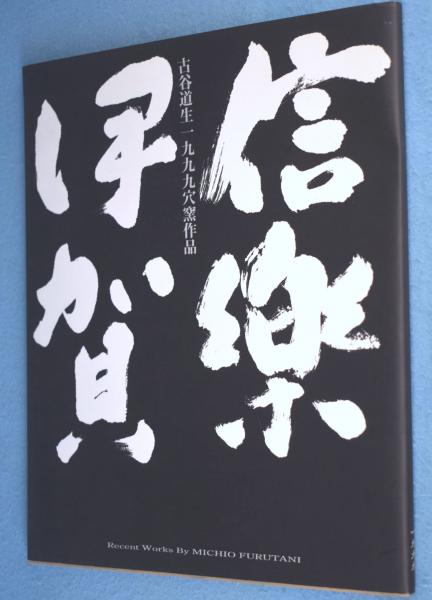 信樂
古谷道生一九九九穴窯作品
伊賀
Recent Works By MICHIO FURUTANI
一九九九